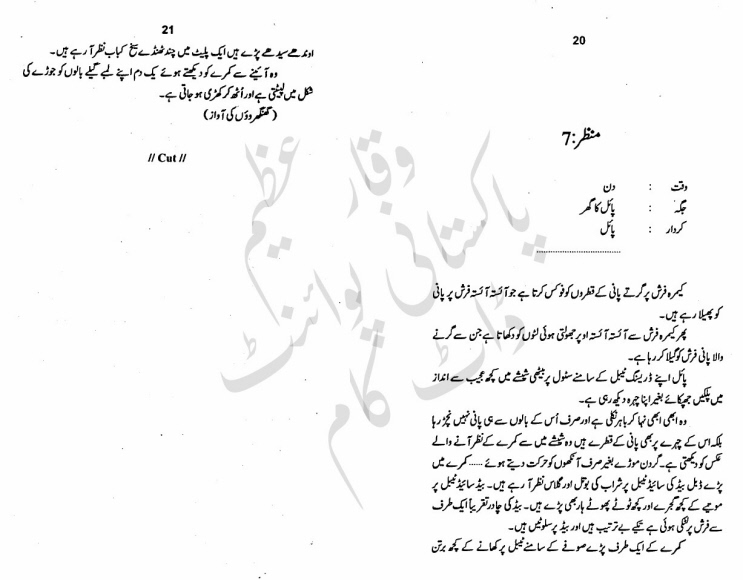 20
منظر:7
وقت : دن
جگہ : پائل کا گھر
کردار : پائل
کیمرہ فرش پر گرتے پانی کے قطروں کو فوکس کرتا ہے جو آہستہ آہستہ فرش پر پانی
کو پھیلا رہے ہیں۔
پھر کیمرہ فرش سے آہستہ آہستہ اوپر جھولتی ہوئی لٹوں کو دکھاتا ہے جن سے گرنے
والا پانی فرش کو گیلا کر رہا ہے۔
پائل اپنے ڈریسنگ ٹیبل کے سامنے سٹول پر بیٹھی شیشے میں کچھ عجیب سے انداز
میں پلکیں جھپکائے بغیر اپنا چہرہ دیکھ رہی ہے۔
وہ ابھی ابھی نہا کر باہر نکلی ہے اور صرف اُس کے بالوں سے ہی پانی نہیں نچڑ رہا
بلکہ اس کے چہرے پر بھی پانی کے قطرے ہیں وہ شیشے میں سے کمرے کے نظر آنے والے
عکس کو دیکھتی ہے۔ گردن موڑے بغیر صرف آنکھوں کو حرکت دیتے ہوئے ...... کمرے میں
پڑے ڈبل بیڈ کی سائیڈ ٹیبل پر شراب کی بوتل اور گلاس نظر آ رہے ہیں۔ بیڈ سائیڈ ٹیبل پر
موتیے کے کچھ گجرے اور کچھ ٹوٹے پھوٹے ہار بھی پڑے ہیں۔ بیڈ کی چادر تقریباً ایک طرف
سے فرش پر لٹکی ہوئی ہے تکیے بے ترتیب ہیں اور بیڈ پر سلوٹیں ہیں۔
کمرے کے ایک طرف پڑے صوفے کے سامنے ٹیبل پر کھانے کے کچھ برتن
21
اوندھے سیدھے پڑے ہیں ایک پلیٹ میں چند ٹھنڈے سیخ کباب نظر آ رہے ہیں۔
وہ آئینے سے کمرے کو دیکھتے ہوئے یک دم اپنے لمبے گیلے بالوں کو جوڑے کی
شکل میں لپیٹتی ہے اور اُٹھ کر کھڑی ہو جاتی ہے۔
(گھنگھروؤں کی آواز)
// Cut //
وقار عظیم
پاکستانی پوائنٹ
ڈاٹ کام